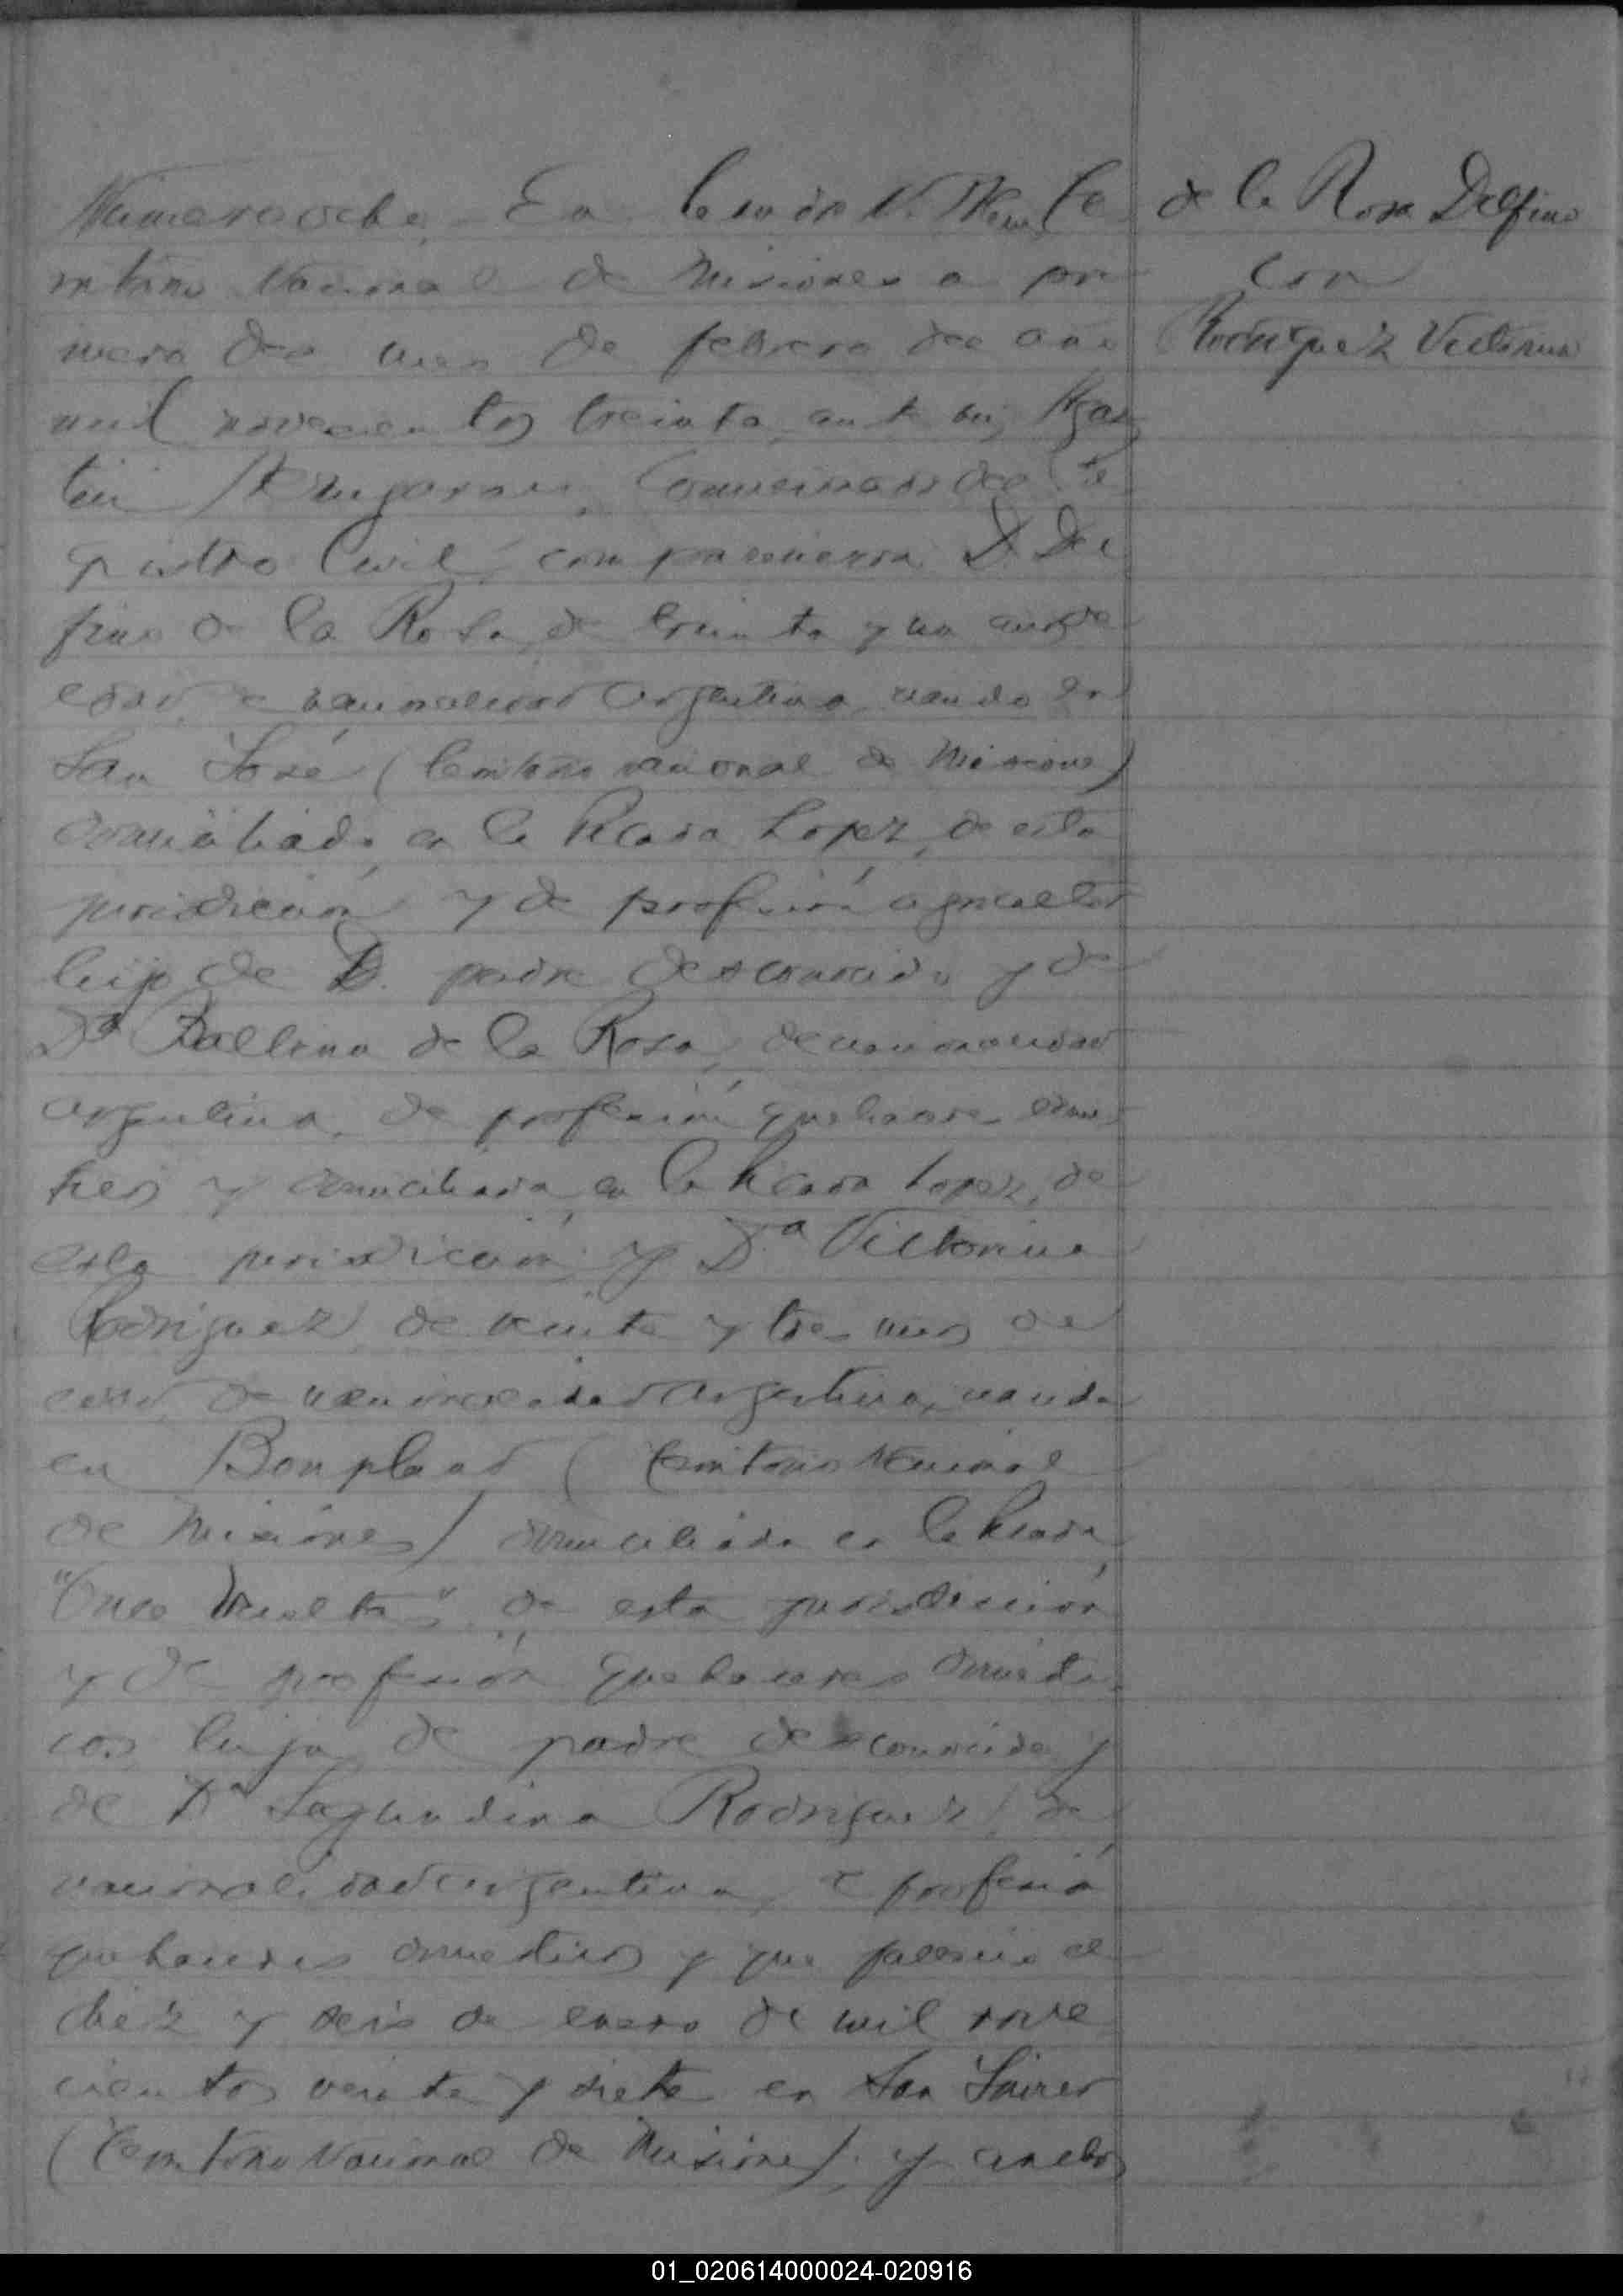 Numero ocho En Leandro N. Alem Te
rritorio Nacional de Misiones a pri
mero del mes de febrero del año
mil novecientos treinta ante mi, Agus
tin Encargado del Re
gistro Civil, comparecieron D. Del
fino de la Rosa, de treinta y un años de
edad, de nacionalidad argentina nacido en
San José (territorio nacional de Misiones)
domiciliado en la Picada Lopez, de esta
jurisdicción y de profesión agricultor
hijo de D. padre desconocido y de
Da Ballina de la Rosa, de nacionalidad
argentina, de profesión quehaceres domes
ticos y domiciliada en la Picada Lopez, de
esta jurisdicción y Da Victorina
Rodriguez de veinte y tres años de
edad, de nacionalidad argentina, nacida
en Bonpland (territorio Nacional
de Misiones) domiciliada en la Picada
"Once Vueltas" de esta jurisdiccion
y de profesión quehaceres domésti
cos hija de padre desconocido y
de Da Segundina Rodriguez, de
nacionalidad argentina, de profesió
quehaceres domesticos y que falleció el
diez y seis de enero de mil nove
cientos veinte y siete en San Javier
(Territorio Nacional de Misiones) y ambos
de la Rosa Delfino
con
Rodriguez Victorina
01_020614000024-020916